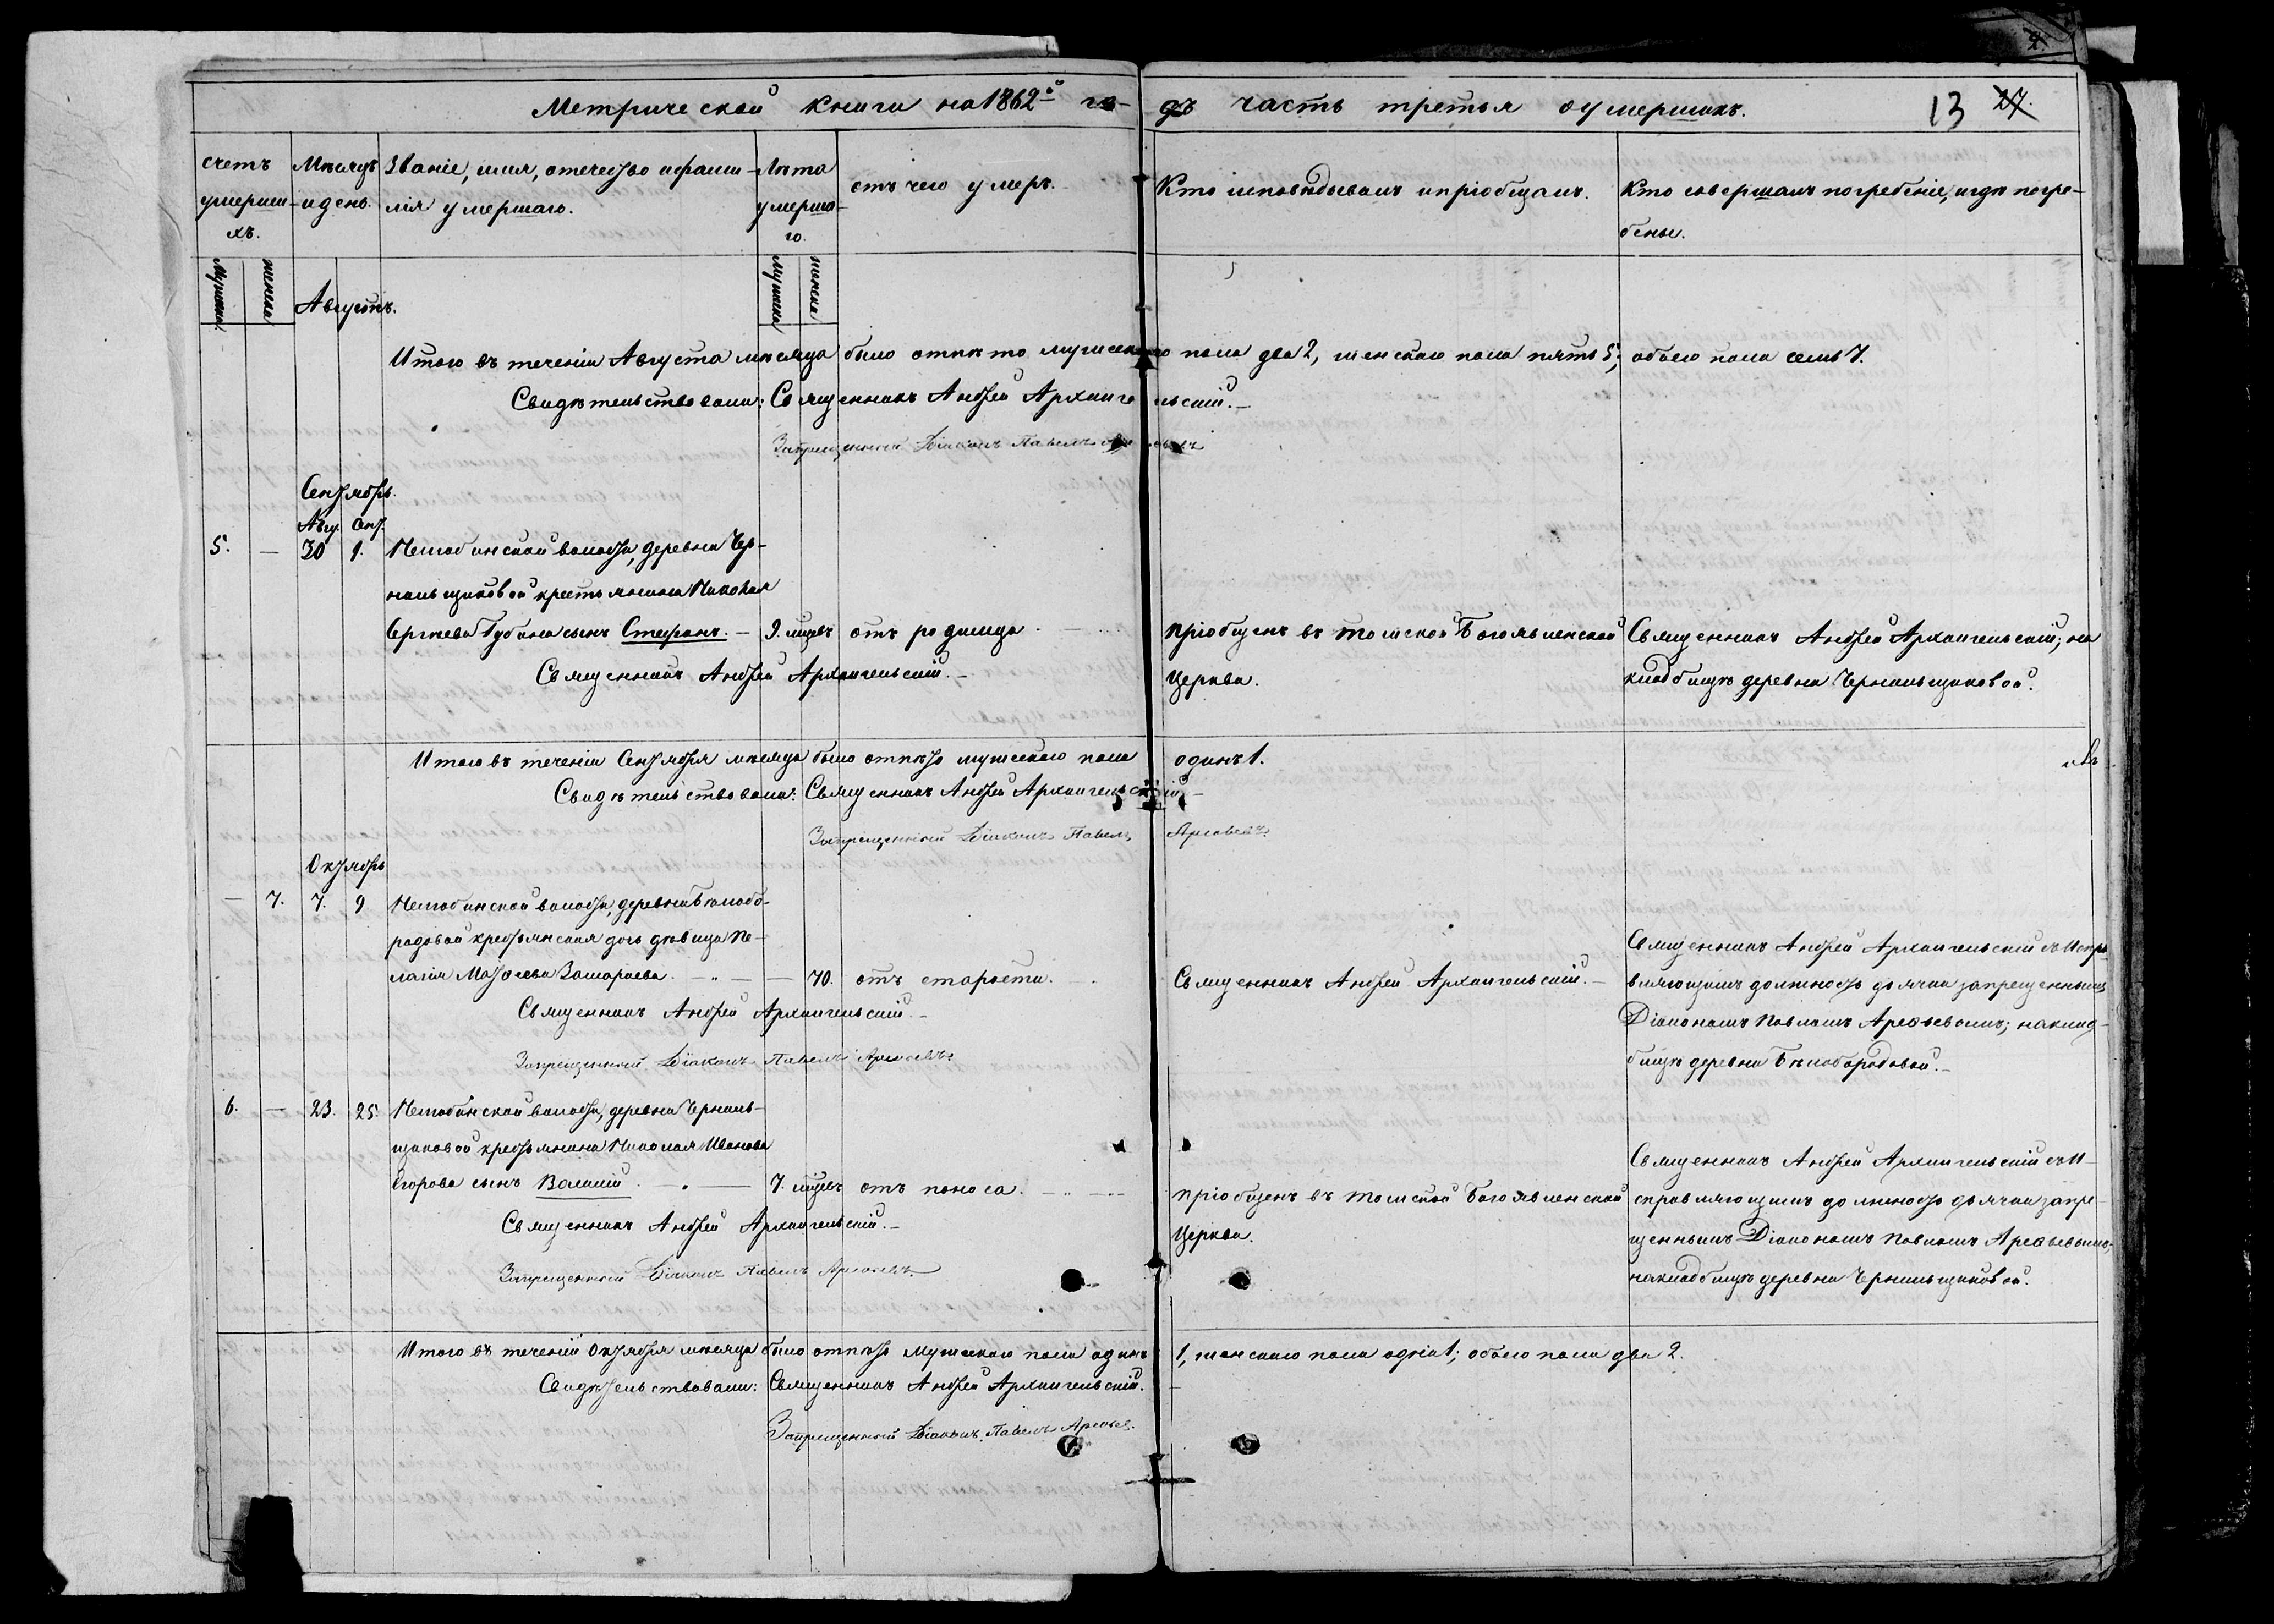 Метрической книги на 1862й го-
дъ часть третья о умершихъ.
13 27.
счетъ умерших-
хъ.
Мѣсяцъ
и день.
Званіе, имя, отечество и фами-
лія умершаго.
Лѣта
умерша-
го.
отъ чего умеръ.
Кто исповѣдывалъ и пріобщалъ.
Кто совершалъ погребеніе, и гдѣ погре-
бены.
Мужска
женска
Мужска
женска
Августъ.
Итого въ теченіи Августа мѣсяца было отпѣто мужскаго пола два 2, женскаго пола пять 5; обоего пола семь 7.
Свидѣтельствовали: Священникъ Андрей Архангельскій.
Запрещенный Діаконъ Павелъ
Сентябрь.
Авг. Сент.
5. — 30 1. волости, деревни Чер-
нильщиковой крестьянина Николая
Сергѣева Губина сынъ Стефанъ. — 9. мцевъ отъ родимца.
пріобщенъ въ Томской Богоявленской
Церкви.
Священникъ Андрей Архангельскій; на
кладбищѣ деревни Чернильщиковой.
Священникъ Андрей Архангельскій.
Итого въ теченіи Сентября мѣсяца было отпѣто мужескаго пола одинъ 1.
Свидѣтельствовали: Священникъ Андрей Архангельскій
Запрещенный Діаконъ Павелъ Арефьевъ.
Октябрь
— 7. 7. 9 волости, деревни Бѣлобо-
родовой крестьянская дочь дѣвица Пе-
лагія Матѳеева — 70. отъ старости.
Священникъ Андрей Архангельскій.
Священникъ Андрей Архангельскій съ Испра-
вляющимъ должность дьячка запрещеннымъ
Діакономъ Павломъ Арефьевымъ; на клад-
бищѣ деревни Бѣлобородовой.
Священникъ Андрей Архангельскій.
Запрещенный Діаконъ Павелъ Арефьевъ.
6. — 23. 25. волости, деревни Черниль-
щиковой крестьянина Николая Иванова
Егорова сынъ Василій. — 7. мцевъ отъ поноса.
пріобщенъ въ Томской Богоявленской
Церкви.
Священникъ Андрей Архангельскій съ И-
справляющимъ должность дьячка запре-
щеннымъ Діакономъ Павломъ Арефьевымъ
на кладбищѣ деревни Чернильщиковой.
Священникъ Андрей Архангельскій.
Запрещенный Діаконъ Павелъ Арефьевъ.
Итого въ теченіи Октября мѣсяца было отпѣто мужскаго пола одинъ 1, женскаго пола одна 1; обоего пола два 2.
Свидѣтельствовали: Священникъ Андрей Архангельскій.
Запрещенный Діаконъ Павелъ Арефьев.